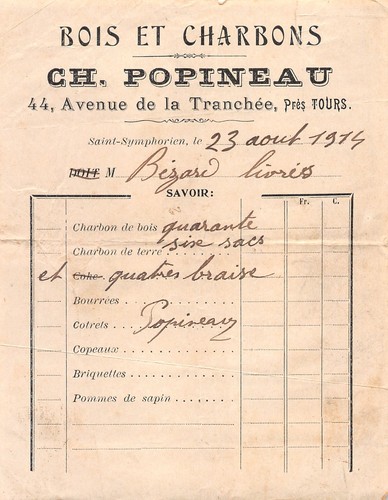 BOIS ET CHARBONS
CH. POPINEAU
44, Avenue de la Tranchée, Près TOURS.
Saint-Symphorien, le 23 aout 1914
DOIT M Bézard livrés
SAVOIR:
Fr. C.
Charbon de bois quarante
Charbon de terre six sacs
et Coke quatres braise
Bourrées
Cotrets Popineau
Copeaux
Briquettes
Pommes de sapin